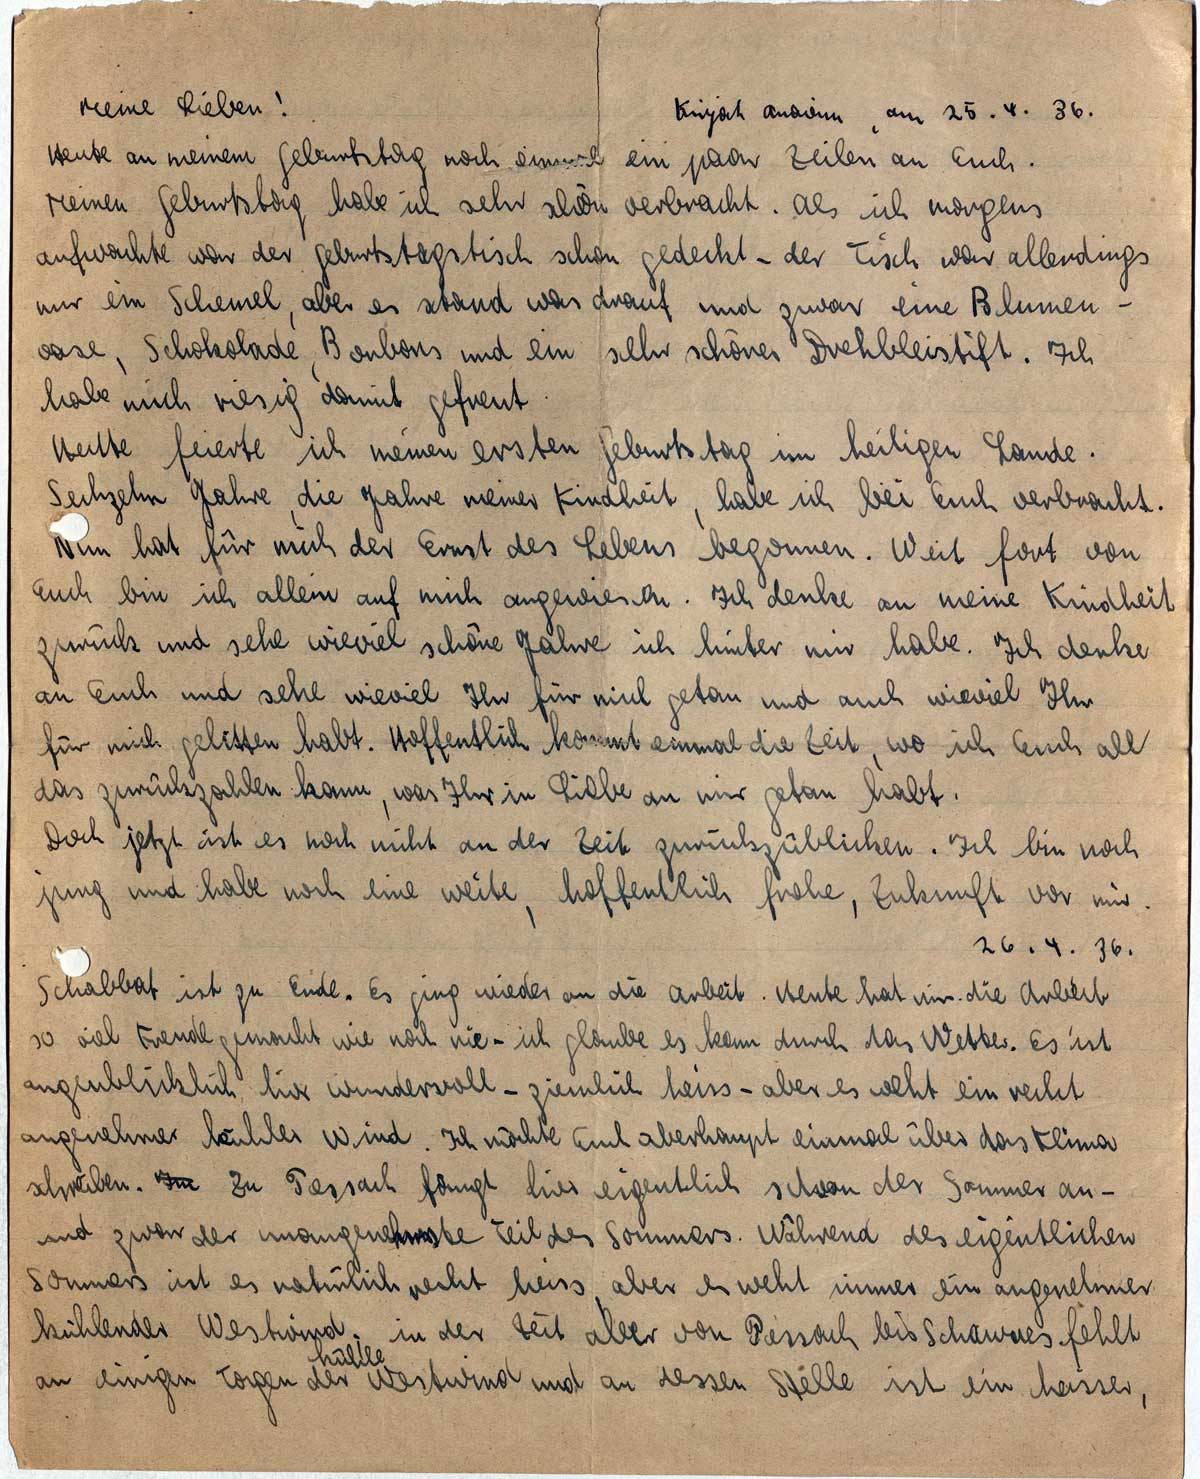 Meine Lieben!
Kirjath Anavim, am 25.4.36.
Heute an meinem Geburtstag noch einmal ein paar Zeilen an Euch.
Meinen Geburtstag habe ich sehr schön verbracht. Als ich morgens
aufwachte war der Geburtstagstisch schon gedeckt - der Tisch war allerdings
nur ein Schemel, aber es stand was drauf und zwar eine Blumen-
vase, Schokolade, Bonbons und ein sehr schöner Drehbleistift. Ich
habe mich riesig damit gefreut.
Heute feierte ich meinen ersten Geburtstag im heiligen Lande.
Sechzehn Jahre, die Jahre meiner Kindheit, habe ich bei Euch verbracht.
Nun hat für mich der Ernst des Lebens begonnen. Weit fort von
Euch bin ich allein auf mich angewiesen. Ich denke an meine Kindheit
zurück und sehe wieviel schöne Jahre ich hinter mir habe. Ich denke
an Euch und sehe wieviel Ihr für mich getan und auch wieviel Ihr
für mich gelitten habt. Hoffentlich kommt einmal die Zeit, wo ich Euch all
das zurückzahlen kann, was Ihr in Liebe an mir getan habt.
Doch jetzt ist es noch nicht an der Zeit zurückzüblicken. Ich bin noch
jung und habe noch eine weite, hoffentlich frohe, Zukunft vor mir.
26.4.36.
Schabbat ist zu Ende. Es ging wieder an die Arbeit. Heute hat mir die Arbeit
so viel Freude gemacht wie noch nie - ich glaube es kam durch das Wetter. Es ist
augenblicklich hier wundervoll - ziemlich heiss - aber es weht ein recht
angenehmer kühler Wind. Ich möchte Euch überhaupt einmal über das Klima
schreiben. Zu Pessach fängt hier eigentlich schon der Sommer an -
und zwar der unangenehmste Teil des Sommers. Während des eigentlichen
Sommers ist es natürlich recht heiss, aber es weht immer ein angenehmer
kühlender Westwind. in der Zeit aber von Pessach bis Schawues fehlt
an einigen Tagen der kühle Westwind und an dessen Stelle ist ein heisser,